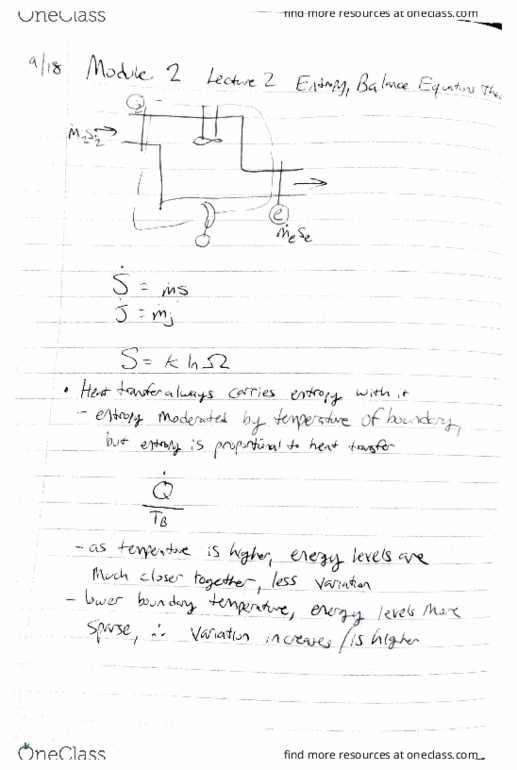 OneClass
find more resources at oneclass.com
9/18 Module 2 Lecture 2 Entropy, Balance Equations
i
ṁᵢsᵢ
e
ṁₑsₑ
Ṡ = ṁs
J̇ = ṁj
S = k ln Ω
• Heat transfer always carries entropy with it
- entropy moderated by temperature of boundary,
but entropy is proportional to heat transfer
Q̇
T_B
- as temperature is higher, energy levels are
much closer together, less variation
- lower boundary temperature, energy levels more
sparse, ∴ variation increases / is higher
OneClass
find more resources at oneclass.com